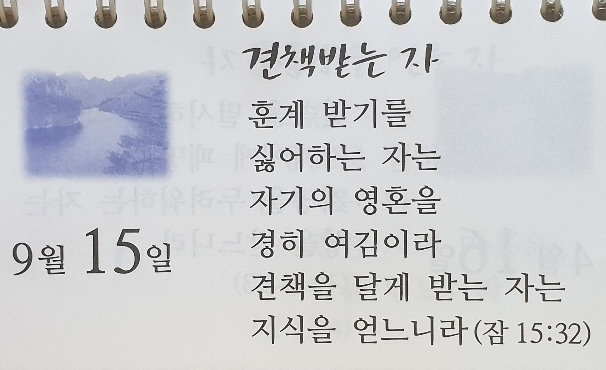 견책받는 자
훈계 받기를
싫어하는 자는
자기의 영혼을
경히 여김이라
견책을 달게 받는 자는
지식을 얻느니라 (잠 15:32)
9월 15일